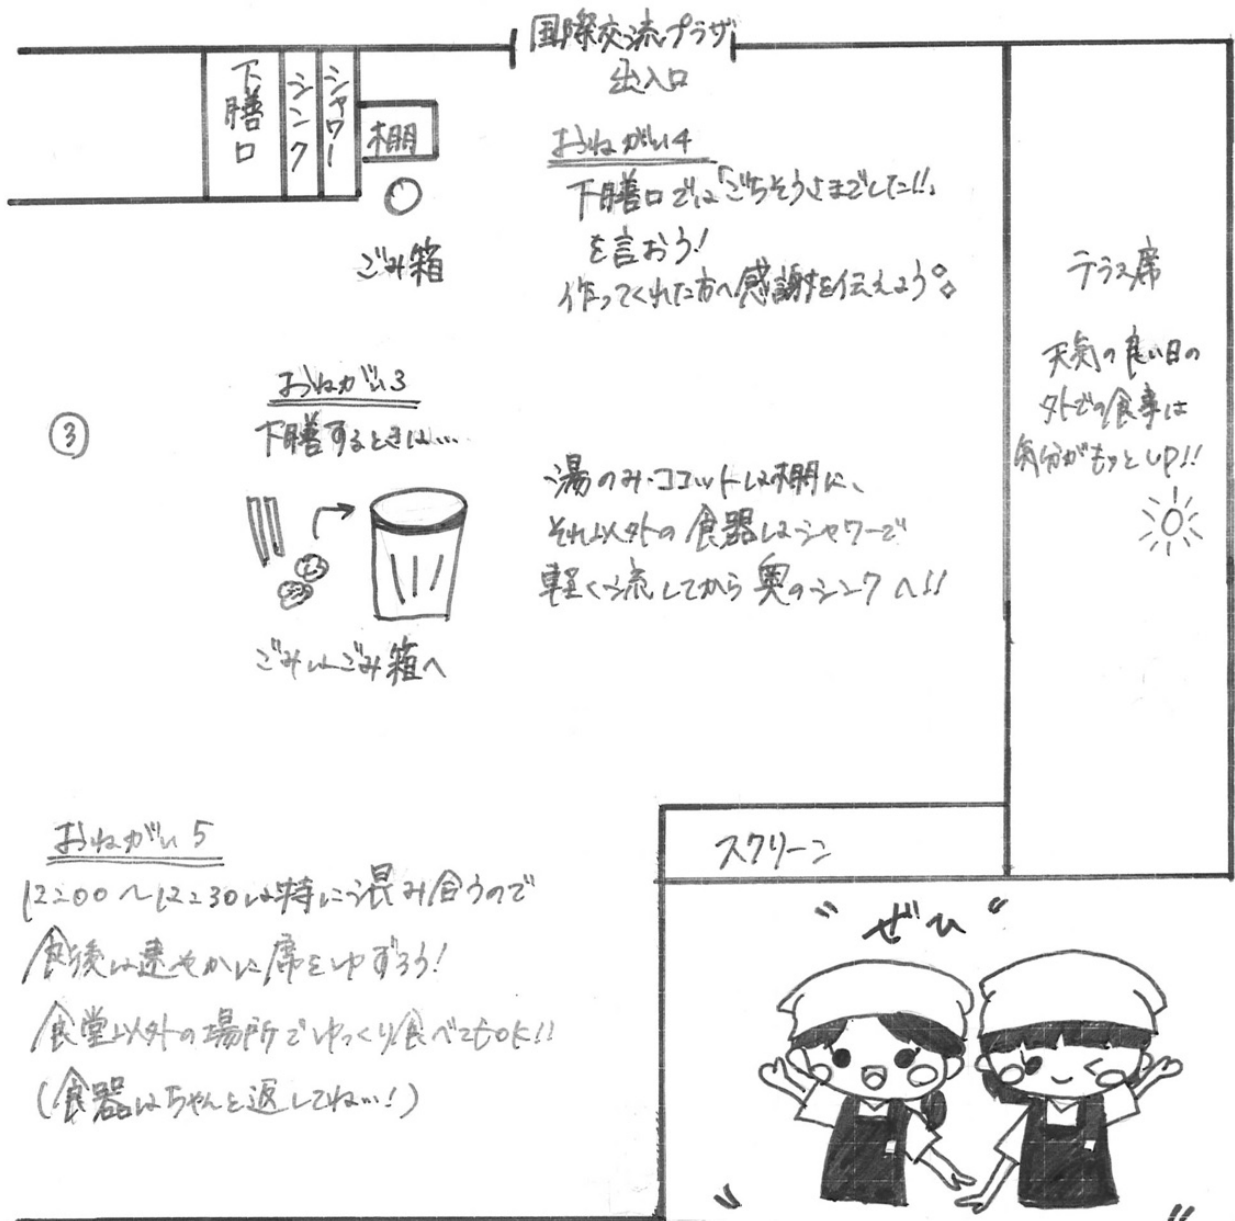 国際交流プラザ
出入口
下膳口
シンク
シャワー
棚
ごみ箱
おねがい4
下膳口では「ごちそうさまでした!!」
を言おう!
作ってくれた方へ感謝を伝えよう
テラス席
天気の良い日の
外での食事は
気分がもっとup!!
③
おねがい3
下膳するときは…
ごみはごみ箱へ
湯のみ・ココットは棚に、
それ以外の食器はシャワーで
軽く流してから奥のシンクへ!!
おねがい5
12:00〜12:30は特に混み合うので
食後は速やかに席をゆずろう!
食堂以外の場所でゆっくり食べてもOK!!
(食器はちゃんと返してね…!)
スクリーン
"ぜひ"